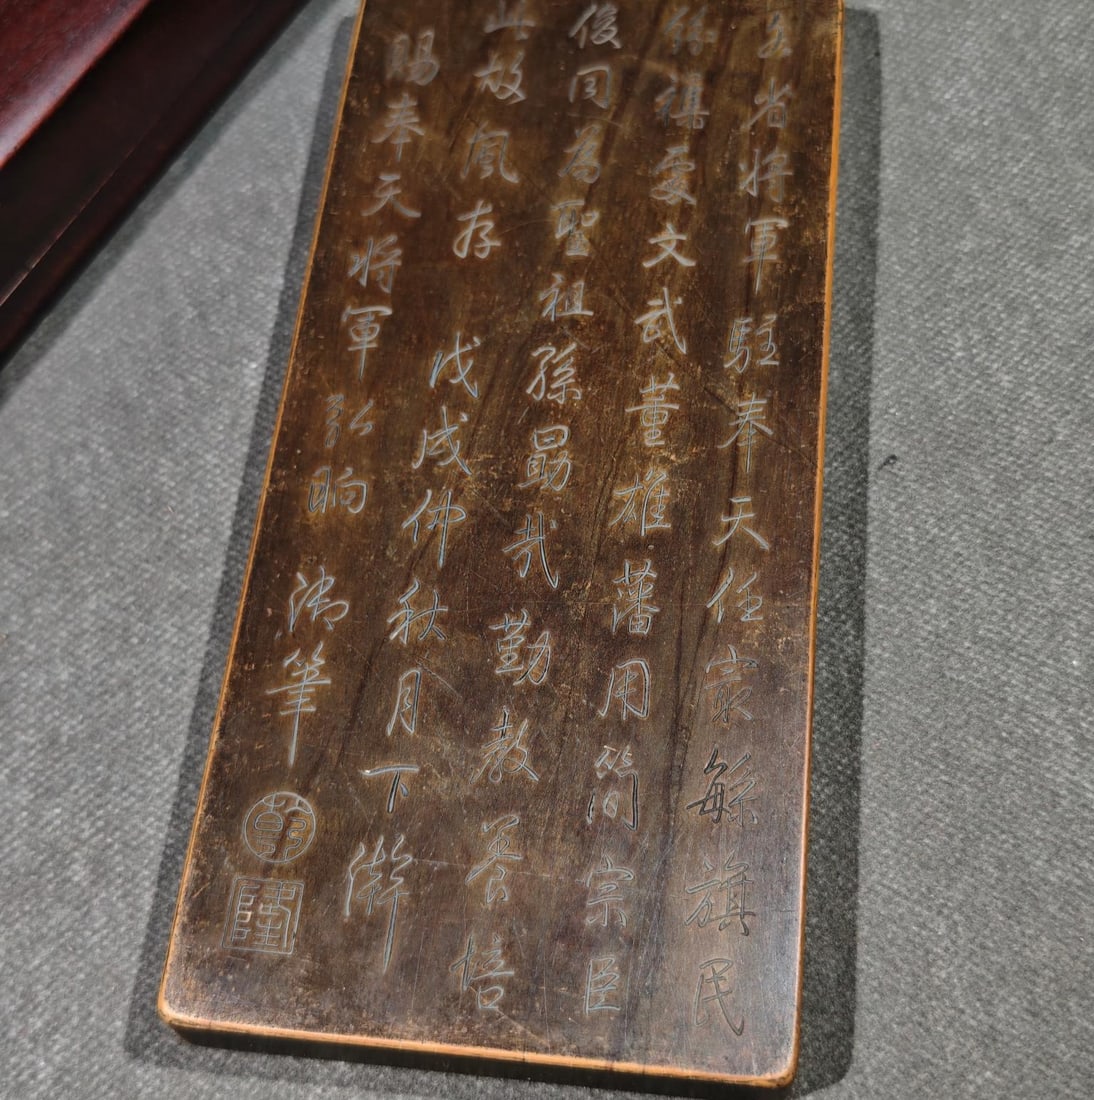 各省将軍駐奉天任㝡緐旗民
要文武董雄藩用簡宗臣
後同為聖祖孫勗哉勤教養培
此故風存 戊戌仲秋月下澣
賜奉天将軍弘晌 御筆
乾
隆